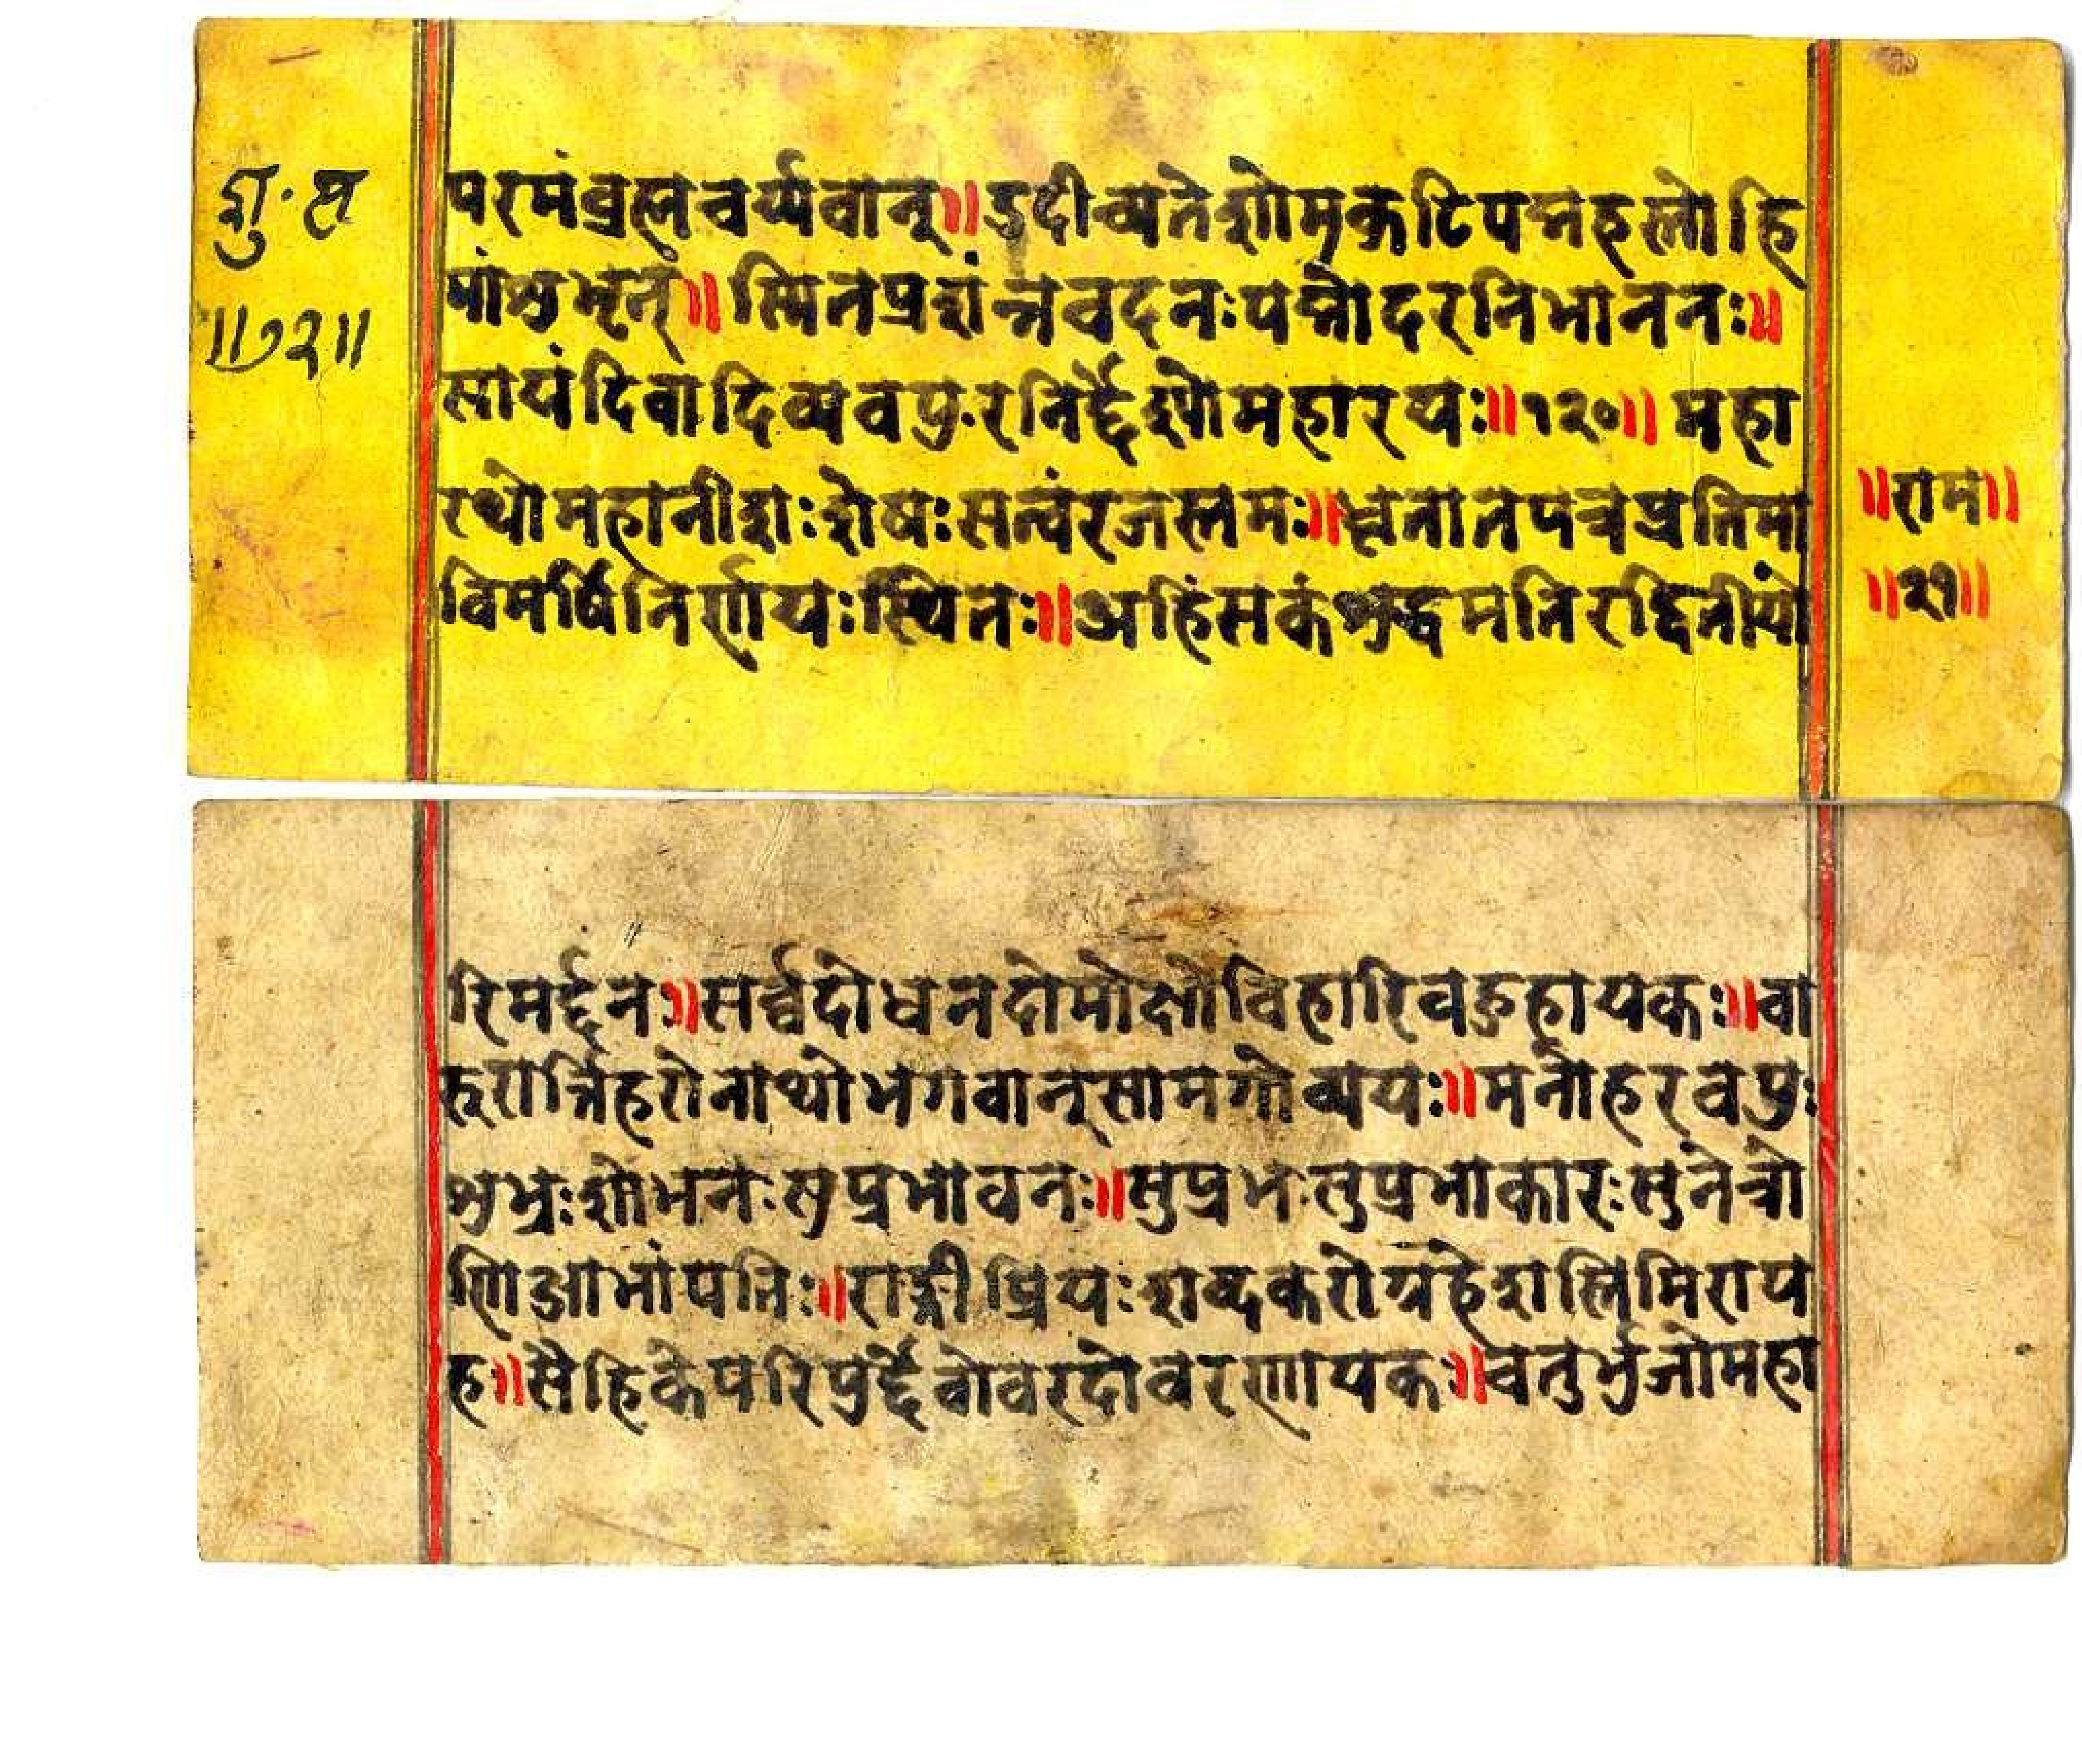 शु॰ स
॥७२॥
परमंब्रह्मचर्य्यवान्॥उदीच्यतेशोमृकटिपद्महस्तोहि
मांशुभृत्॥स्मितप्रशंन्नवदनःपद्मोदरनिभाननः॥
सायंदिवादिव्यवपुरनिर्द्देश्योमहारथः॥१२०॥महा
रथोमहानीशःशेषःसत्वंरजस्तमः॥धृतातपत्रप्रतिमा
विमर्षिनिर्णयःस्थितः॥अहिंसकंशुद्धमतिरद्वितीयो
॥राम॥
॥२१॥
रिमर्द्दनः॥सर्व्वदोधनदोमोक्षोविहारिवहुदायकः॥चा
रुरार्त्तिहरोनाथोभगवान्सामगोव्ययः॥मनोहरवपुः
शुभ्रःशोभनःसुप्रभावनः॥सुप्रभःसुप्रभाकारःसुनेत्रो
णिआभांपतिः॥राज्ञीप्रियःशव्दकरोग्रहेशस्तिमिराप
ह॥सैहिकेपरिपुर्द्देवोवरदोवरणायकः॥चतुर्भुजोमहा